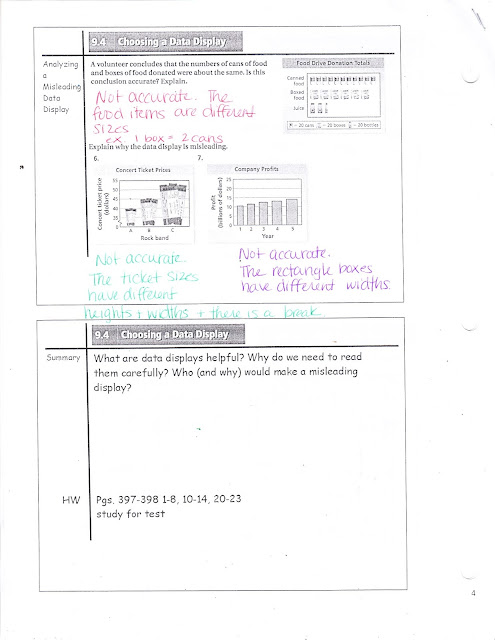 9.4 Choosing a Data Display
Analyzing
a
Misleading
Data
Display
A volunteer concludes that the numbers of cans of food
and boxes of food donated were about the same. Is this
conclusion accurate? Explain.
Not accurate. The
food items are different
sizes
ex 1 box = 2 cans
Food Drive Donation Totals
Canned
food
Boxed
food
Juice
= 20 cans = 20 boxes = 20 bottles
Explain why the data display is misleading.
6.
Concert Ticket Prices
Concert ticket price
(dollars)
55
50
45
40
35
0
A B C
Rock band
7.
Company Profits
Profit
(billions of dollars)
25
20
15
10
5
0
1 2 3 4 5
Year
Not accurate.
The ticket sizes
have different
heights + widths + there is a break.
Not accurate.
The rectangle boxes
have different widths.
9.4 Choosing a Data Display
Summary
What are data displays helpful? Why do we need to read
them carefully? Who (and why) would make a misleading
display?
HW
Pgs. 397-398 1-8, 10-14, 20-23
study for test
4